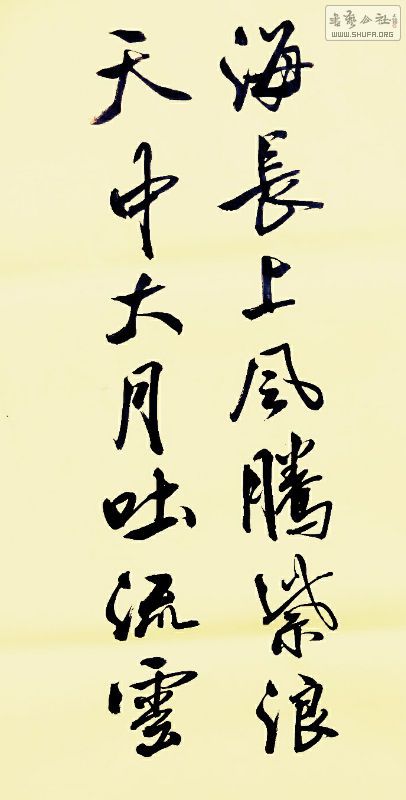 海長上风騰紫浪
天中大月吐流雲
書藝公社
WWW.SHUFA.ORG